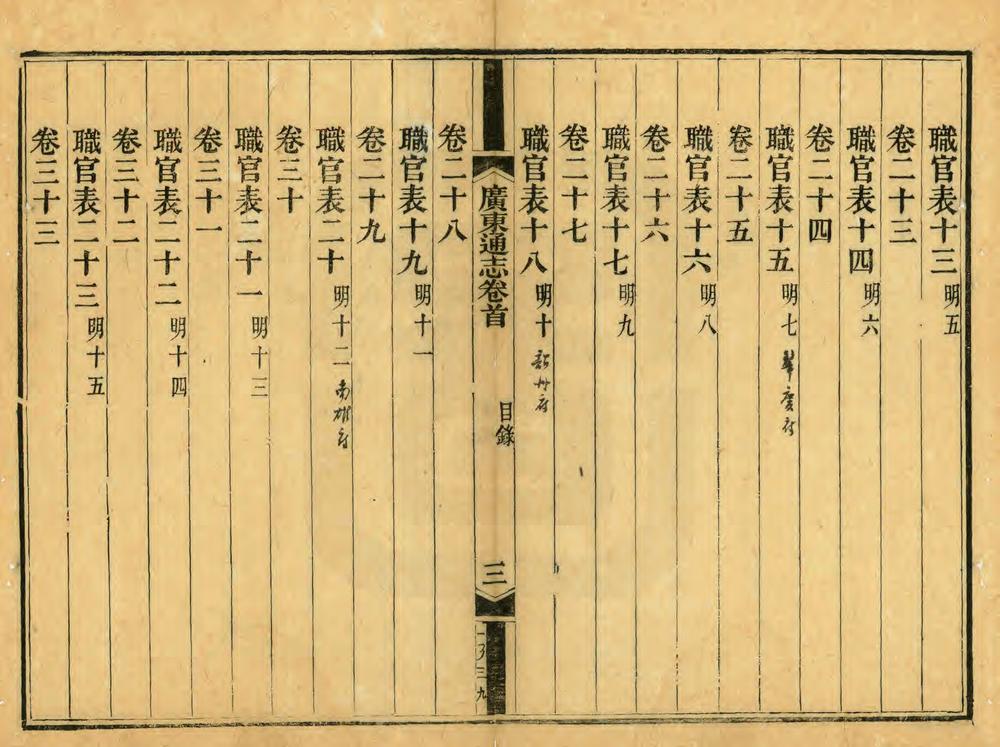 職官表十三 明五
卷二十三
職官表十四 明六
卷二十四
職官表十五 明七 肇慶府
卷二十五
職官表十六 明八
卷二十六
職官表十七 明九
卷二十七
職官表十八 明十 韶州府
廣東通志卷首 目錄 三
卷二十八
職官表十九 明十一
卷二十九
職官表二十 明十二 南雄府
卷三十
職官表二十一 明十三
卷三十一
職官表二十二 明十四
卷三十二
職官表二十三 明十五
卷三十三